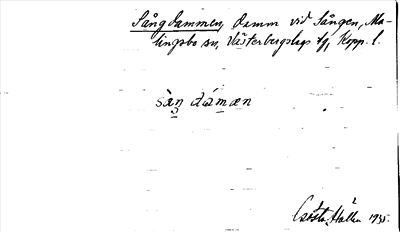 Sångdammen, damm vid Sången, Ma-
lingsbo sn, Västerbergslags tg, Kopp. l.
sàŋ dámæn
Gösta Hallen 1935.